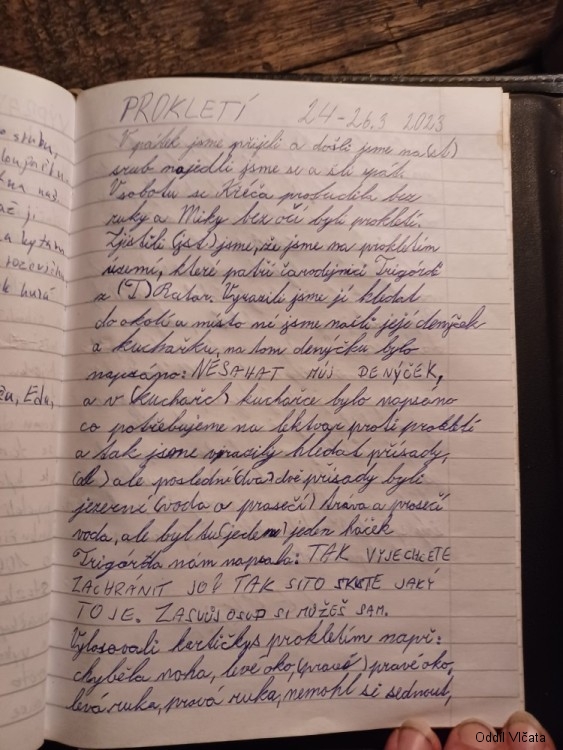 o srubu,
PROKLETÍ 24-26.3 2023
V pátek jsme přijeli a došli jsme na(st)
srub najedli jsme se a šli spát.
V sobotu se Kéča probudila bez
ruky a Miky bez očí byli prokletí.
Zjistili (jst) jsme, že jsme na prokletím
území, které patří čarodějnici Trigórě
z (T) Ratar. Vyrazili jsme jí hledat
do okolí a místo ní jsme našli její denýček
a kuchařku, na tom denýčku bylo
napsáno: NESAHAT MŮJ DENÝČEK,
a v (kuchařc) kuchařce bylo napsano
co potřebujeme na lektvar proti prokletí
a tak jsme vyrazily hledat přísady,
(ale) ale poslední (dva) dvě přísady byli
jezerní (voda a prasečí) tráva a prasečí
voda, ale byl tu (jeden) jeden háček
Trigórda nám napsala: TAK VYJECHCETE
ZACHRÁNIT JO? TAK SITO SKSTE JAKÝ
TO JE. ZASVŮJ OSUD SI MŮŽEŠ SAM.
Vylosovali kartičky s prokletím např:
chyběla noha, levé oko, (pravé) pravé oko,
levá ruka, pravá ruka, nemohl si sednout,
a kytaru
zu, Edu,
Oddíl Vlčata